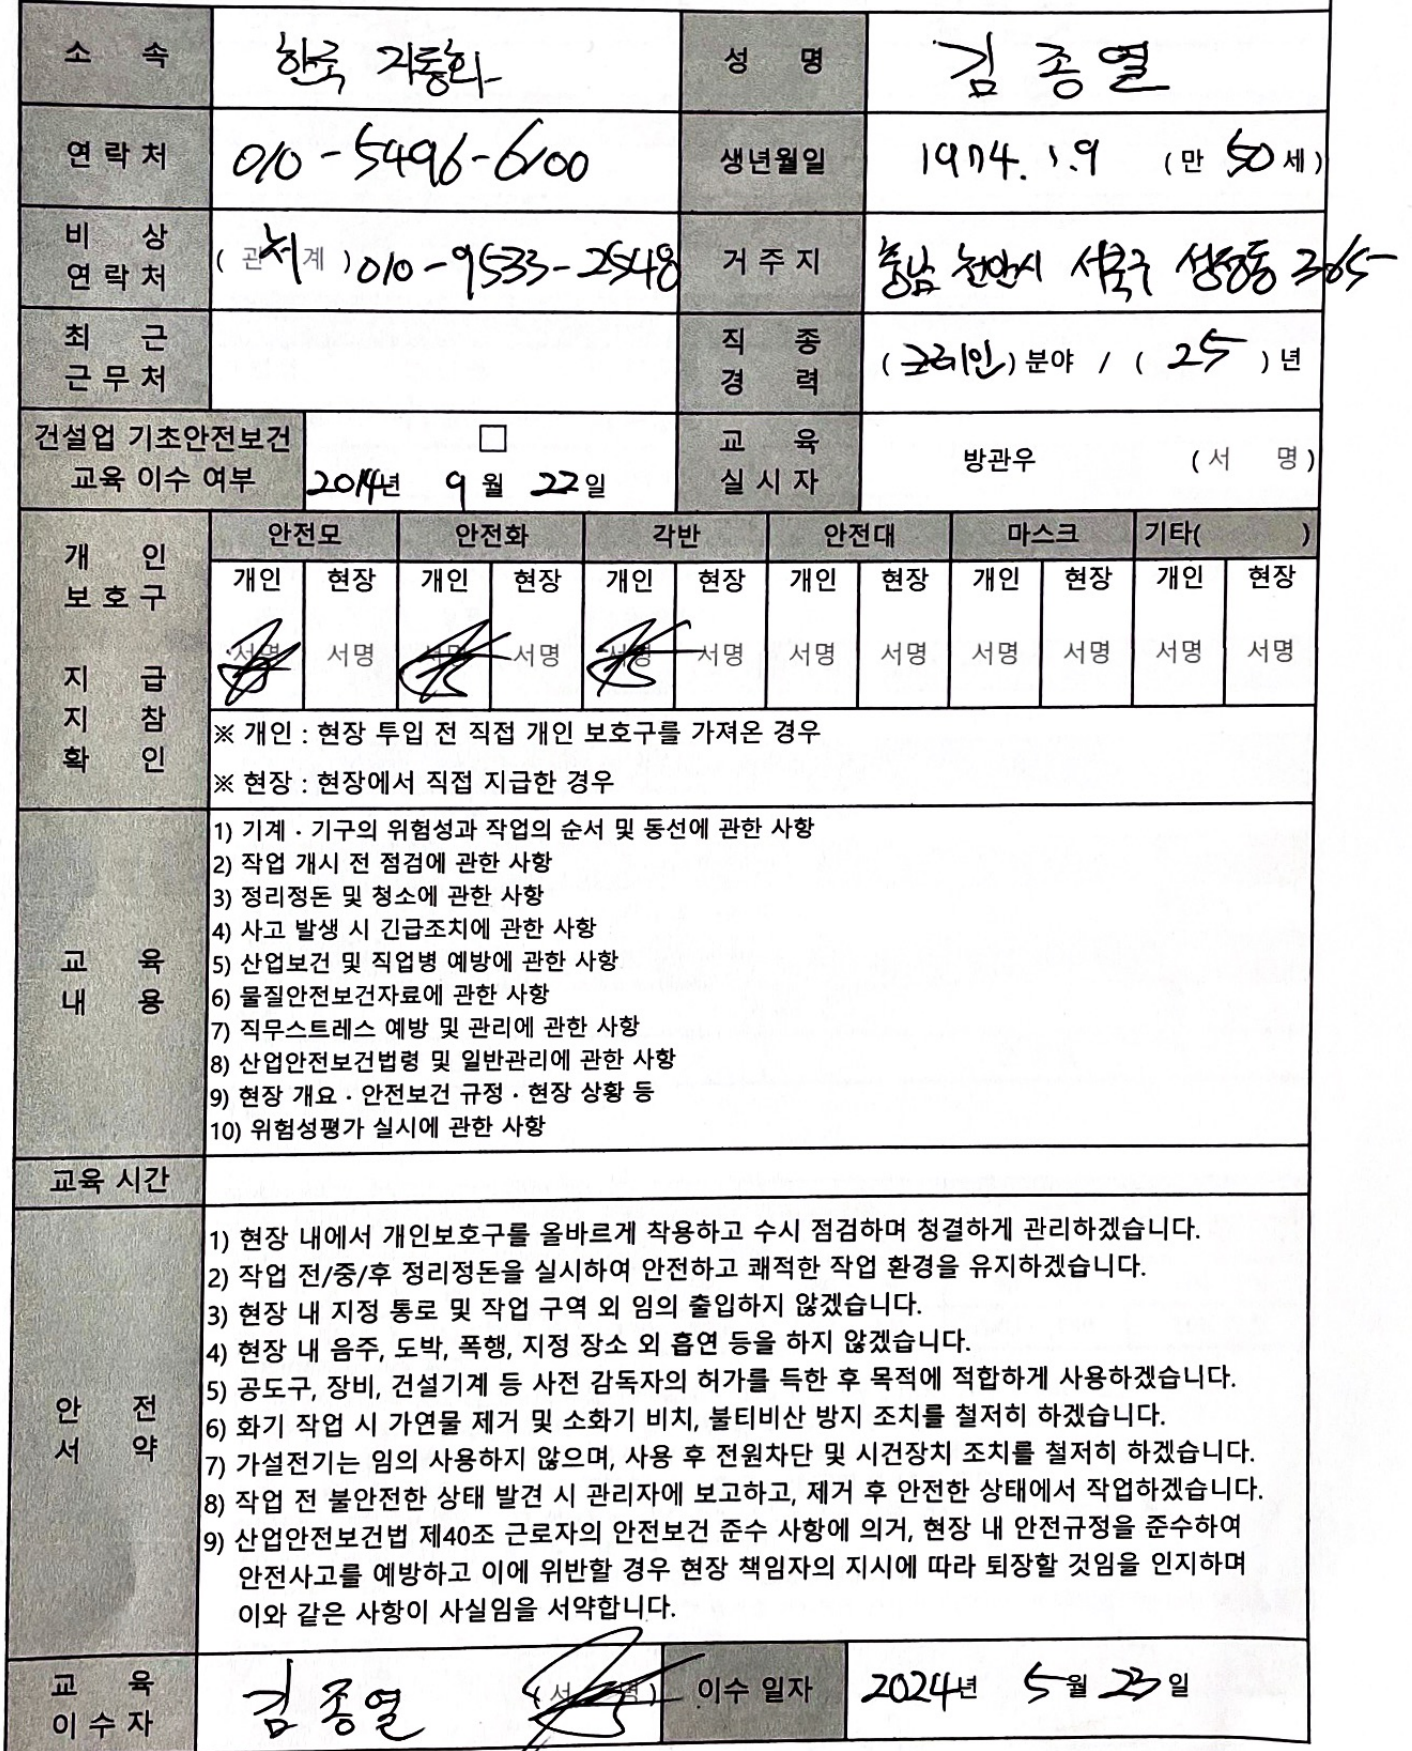 소 속 한국 자동화 성 명 김종열
연락처 010-5496-6100 생년월일 1974. 1. 9 (만 50 세)
비 상
연락처 (관 처 계) 010-9533-2548 거주지 충남 천안시 서북구 성정동 365
최 근
근무처
직 종
경 력 (크레인) 분야 / ( 25 ) 년
건설업 기초안전보건
교육 이수 여부 □
2014년 9월 22일
교 육
실시자 방관우 (서 명)
개 인
보호구
지 급
지 참
확 인
안전모 안전화 각반 안전대 마스크 기타( )
개인 현장 개인 현장 개인 현장 개인 현장 개인 현장 개인 현장
서명 서명 서명 서명 서명 서명 서명 서명 서명 서명 서명 서명
※ 개인 : 현장 투입 전 직접 개인 보호구를 가져온 경우
※ 현장 : 현장에서 직접 지급한 경우
교 육
내 용
1) 기계 · 기구의 위험성과 작업의 순서 및 동선에 관한 사항
2) 작업 개시 전 점검에 관한 사항
3) 정리정돈 및 청소에 관한 사항
4) 사고 발생 시 긴급조치에 관한 사항
5) 산업보건 및 직업병 예방에 관한 사항
6) 물질안전보건자료에 관한 사항
7) 직무스트레스 예방 및 관리에 관한 사항
8) 산업안전보건법령 및 일반관리에 관한 사항
9) 현장 개요 · 안전보건 규정 · 현장 상황 등
10) 위험성평가 실시에 관한 사항
교육 시간
안 전
서 약
1) 현장 내에서 개인보호구를 올바르게 착용하고 수시 점검하며 청결하게 관리하겠습니다.
2) 작업 전/중/후 정리정돈을 실시하여 안전하고 쾌적한 작업 환경을 유지하겠습니다.
3) 현장 내 지정 통로 및 작업 구역 외 임의 출입하지 않겠습니다.
4) 현장 내 음주, 도박, 폭행, 지정 장소 외 흡연 등을 하지 않겠습니다.
5) 공도구, 장비, 건설기계 등 사전 감독자의 허가를 득한 후 목적에 적합하게 사용하겠습니다.
6) 화기 작업 시 가연물 제거 및 소화기 비치, 불티비산 방지 조치를 철저히 하겠습니다.
7) 가설전기는 임의 사용하지 않으며, 사용 후 전원차단 및 시건장치 조치를 철저히 하겠습니다.
8) 작업 전 불안전한 상태 발견 시 관리자에 보고하고, 제거 후 안전한 상태에서 작업하겠습니다.
9) 산업안전보건법 제40조 근로자의 안전보건 준수 사항에 의거, 현장 내 안전규정을 준수하여
안전사고를 예방하고 이에 위반할 경우 현장 책임자의 지시에 따라 퇴장할 것임을 인지하며
이와 같은 사항이 사실임을 서약합니다.
교 육
이수자 김종열 (서 명) 이수 일자 2024년 5월 23일